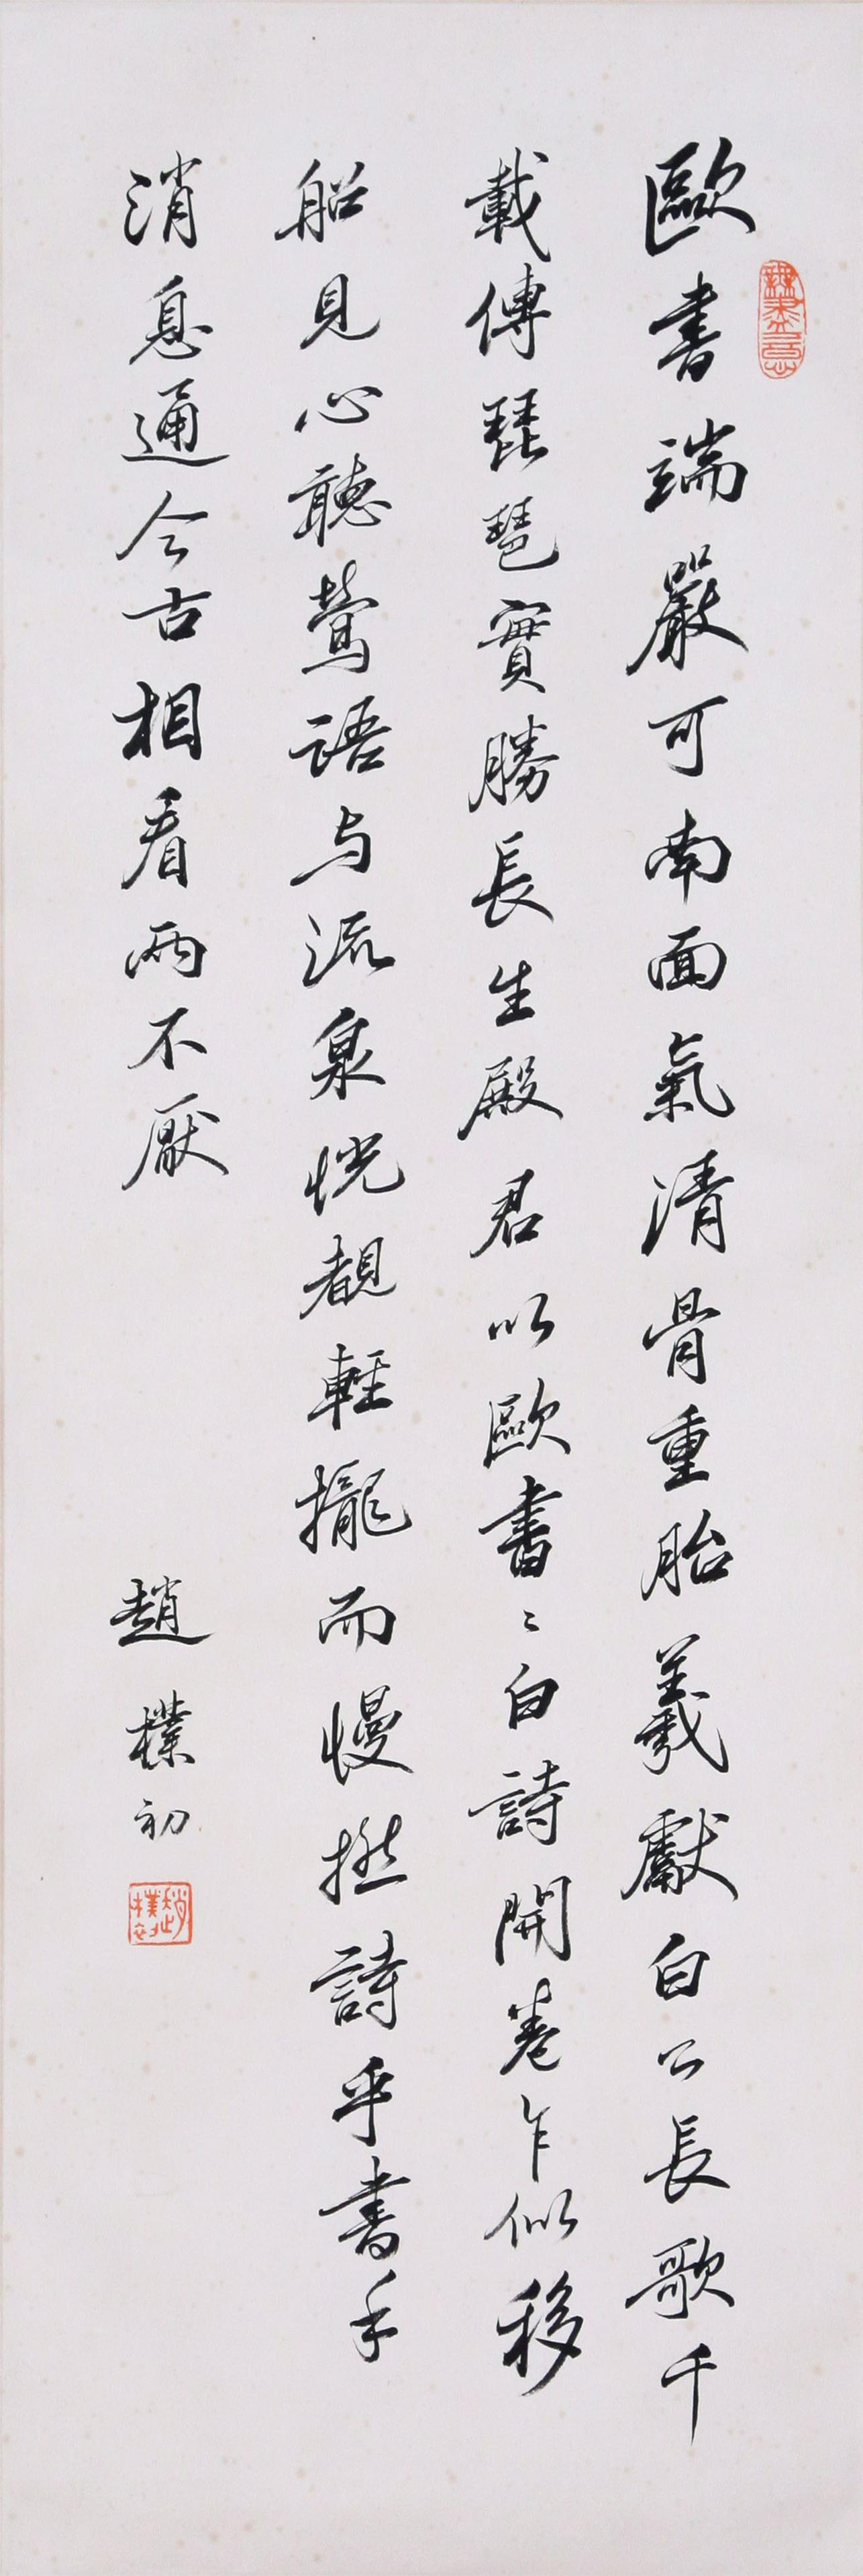 歐書端嚴可南面氣清骨重胎羲獻白公長歌千
載傳琵琶實勝長生殿君以歐書〻白詩開卷乍似移
船見心聽鶯語与流泉恍覩輕攏而慢撚詩乎書乎
消息通今古相看兩不厭
趙樸初
趙樸初